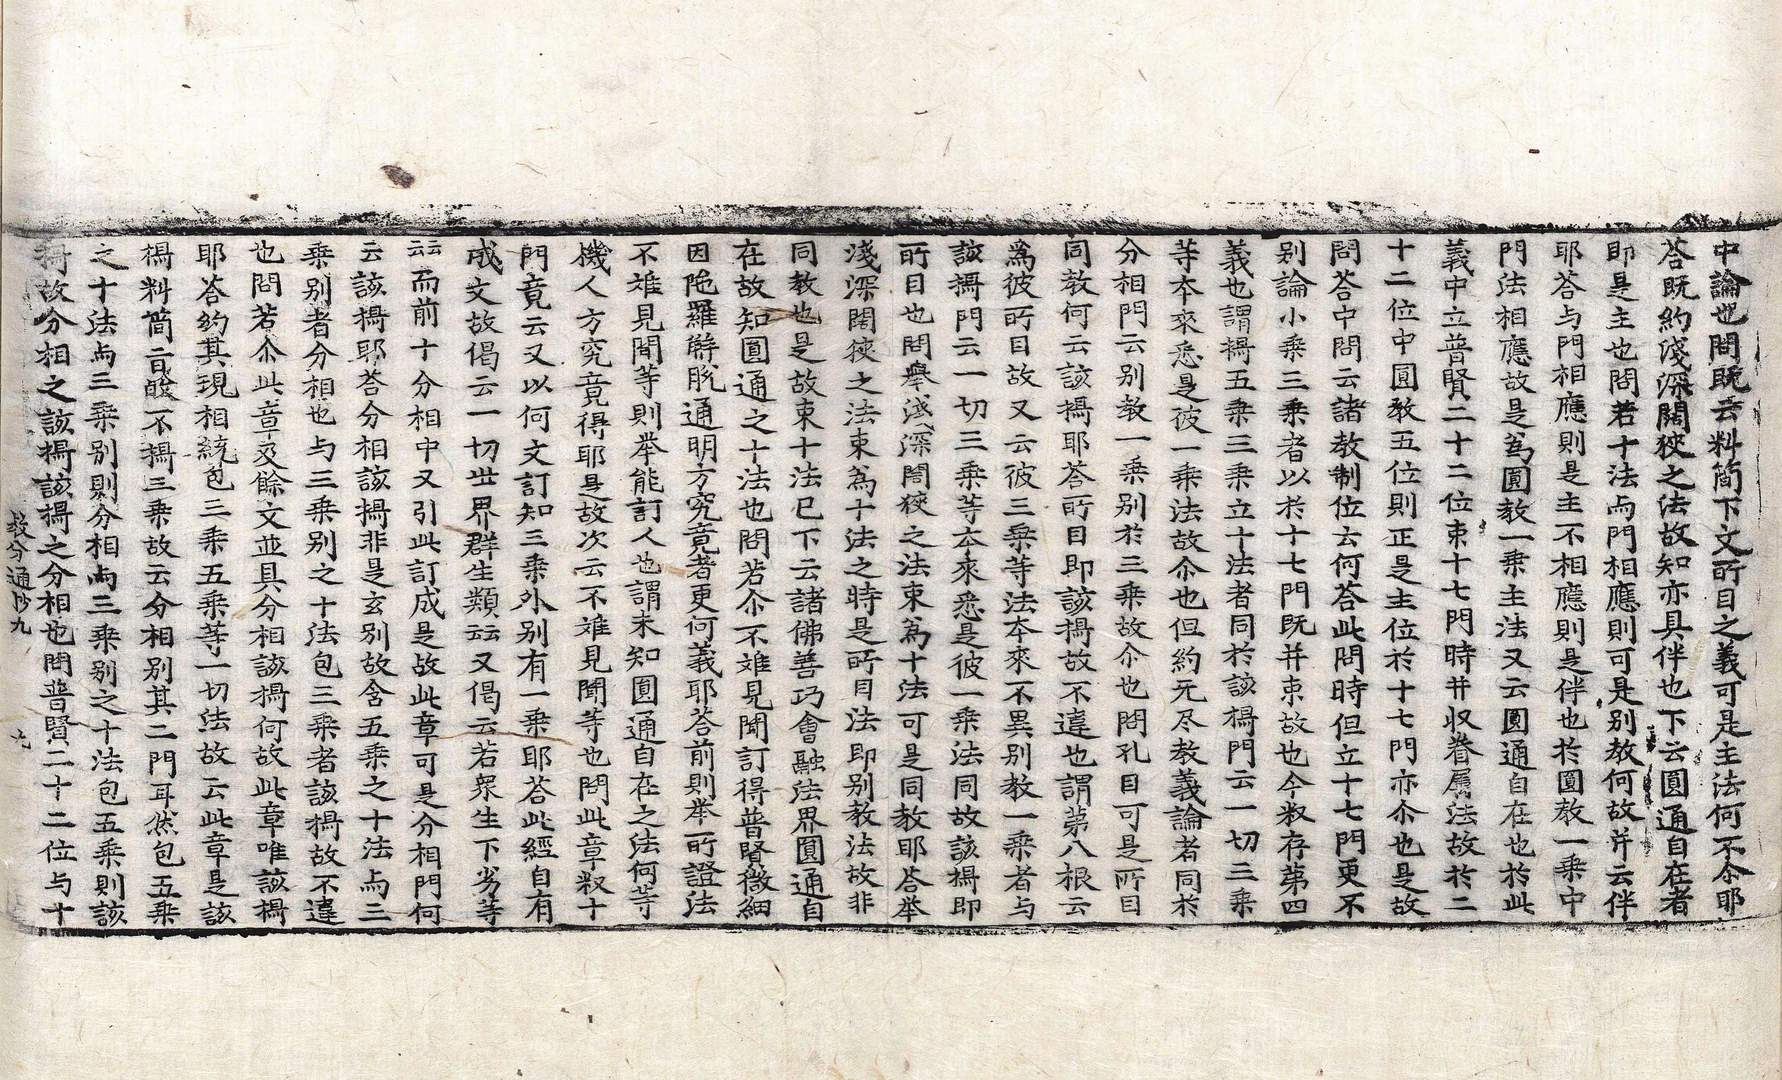 中論也問既云料簡下文所目之義可是主法何不尒耶
答既約淺深闊狹之法故知亦具伴也下云圓通自在者
即是主也問若十法与門相應則可是别教何故并云伴
耶答与門相應則是主不相應則是伴也於圓教一乗中
門法相應故是為圓教一乗主法又云圓通自在也於此
義中立普賢二十二位束十七門時并収眷属法故於二
十二位中圓教五位則正是主位於十七門亦尒也是故
問答中問云諸教制位云何答此問時但立十七門更不
别論小乗三乗者以於十七門既并束故也今叙存苐四
義也謂攝五乗三乗立十法者同於該攝門云一切三乗
等本來悉是彼一乗法故尒也但約无尽教義論者同於
分相門云别教一乗别於三乗故尒也問孔目可是所目
同教何云該攝耶答所目即該攝故不違也謂苐八根云
為彼所目故又云彼三乗等法本來不異别教一乗者与
該攝門云一切三乗等本來悉是彼一乗法同故該攝即
所目也問舉淺深闊狹之法束為十法可是同教耶答举
淺深闊狹之法束為十法之時是所目法即别教法故非
同教也是故束十法已下云諸佛善巧會融法界圓通自
在故知圓通之十法也問若尒不雖見聞訂得普賢微細
因陁羅解脫通明方究竟者更何義耶答前則举所證法
不雖見聞等則举能訂人也謂未知圓通自在之法何等
機人方究竟得耶是故次云不雖見聞等也問此章叙十
門竟云又以何文訂知三乗外别有一乗耶答此經自有
成文故偈云一切世界群生類云云又偈云若衆生下劣等
云云而前十分相中又引此訂成是故此章可是分相門何
云該攝耶答分相該攝非是玄别故含五乗之十法与三
乗别者分相也与三乗别之十法包三乗者該攝故不違
也問若尒此章及餘文並具分相該攝何故此章唯該攝
耶答約其現相統包三乗五乗等一切法故云此章是該
攝料简言雖不攝三乗故云分相别其二門耳然包五乗
之十法与三乗别則分相与三乗别之十法包五乗則該
攝故分相之該攝該攝之分相也問普賢二十二位与十
教分通抄九 九